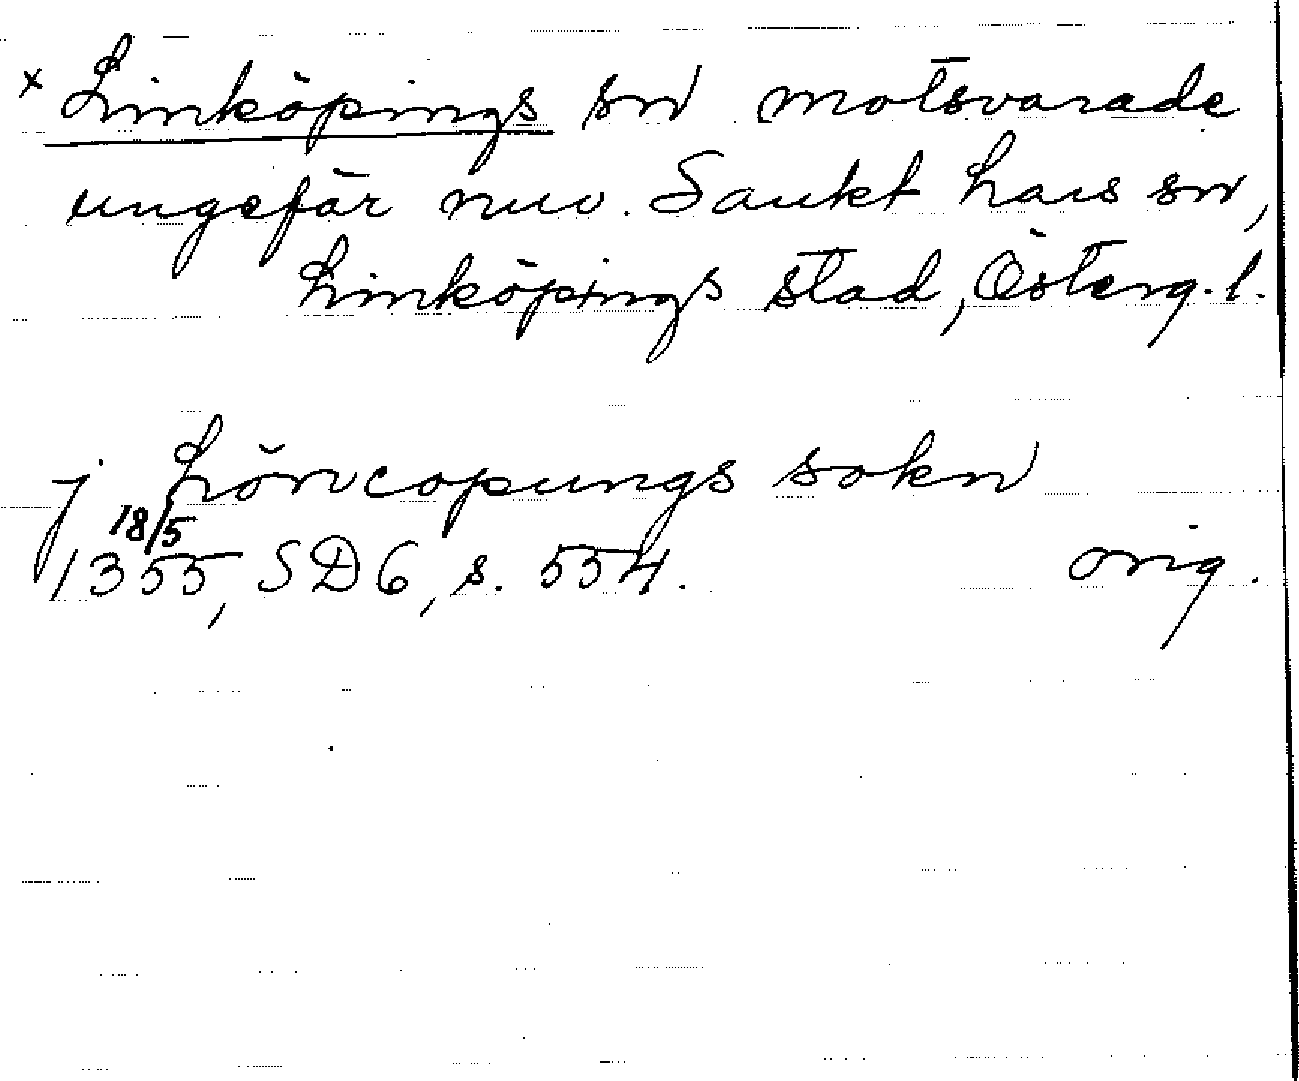 x Linköpings sn motsvarade
ungefär nuv. Sankt Lars sn,
Linköpings stad, Österg. l.
j Lönccopungs sokn
18/5
1355, SD 6, s. 554. orig.